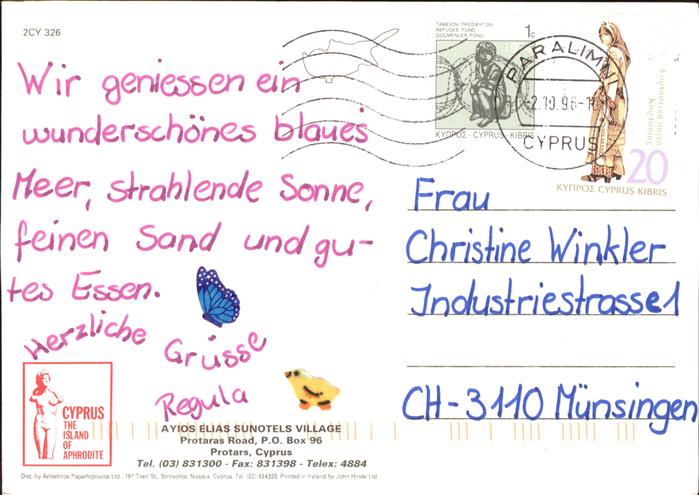 2CY 326
Wir geniessen ein
wunderschönes blaues
Meer, strahlende Sonne,
feinen Sand und gu-
tes Essen.
Herzliche Grüsse
Regula
CYPRUS
THE
ISLAND
OF
APHRODITE
AYIOS ELIAS SUNOTELS VILLAGE
Protaras Road, P.O. Box 96
Protars, Cyprus
Tel. (03) 831300 - Fax: 831398 - Telex: 4884
Dist. by Apostolos Papadopoulos Ltd., Strovolos, Nicosia, Cyprus. Tel. (02) 424320. Printed in Ireland by John Hinde Ltd.
ΤΑΜΕΙΟΝ ΠΡΟΣΦΥΓΩΝ
REFUGEE FUND
GÖÇMENLER FONU
1c
ΚΥΠΡΟΣ - CYPRUS - KIBRIS
PARALIMNI
2.10.96
CYPRUS
20
ΚΥΠΡΟΣ CYPRUS KIBRIS
Frau
Christine Winkler
Industriestrasse 1
CH-3110 Münsingen